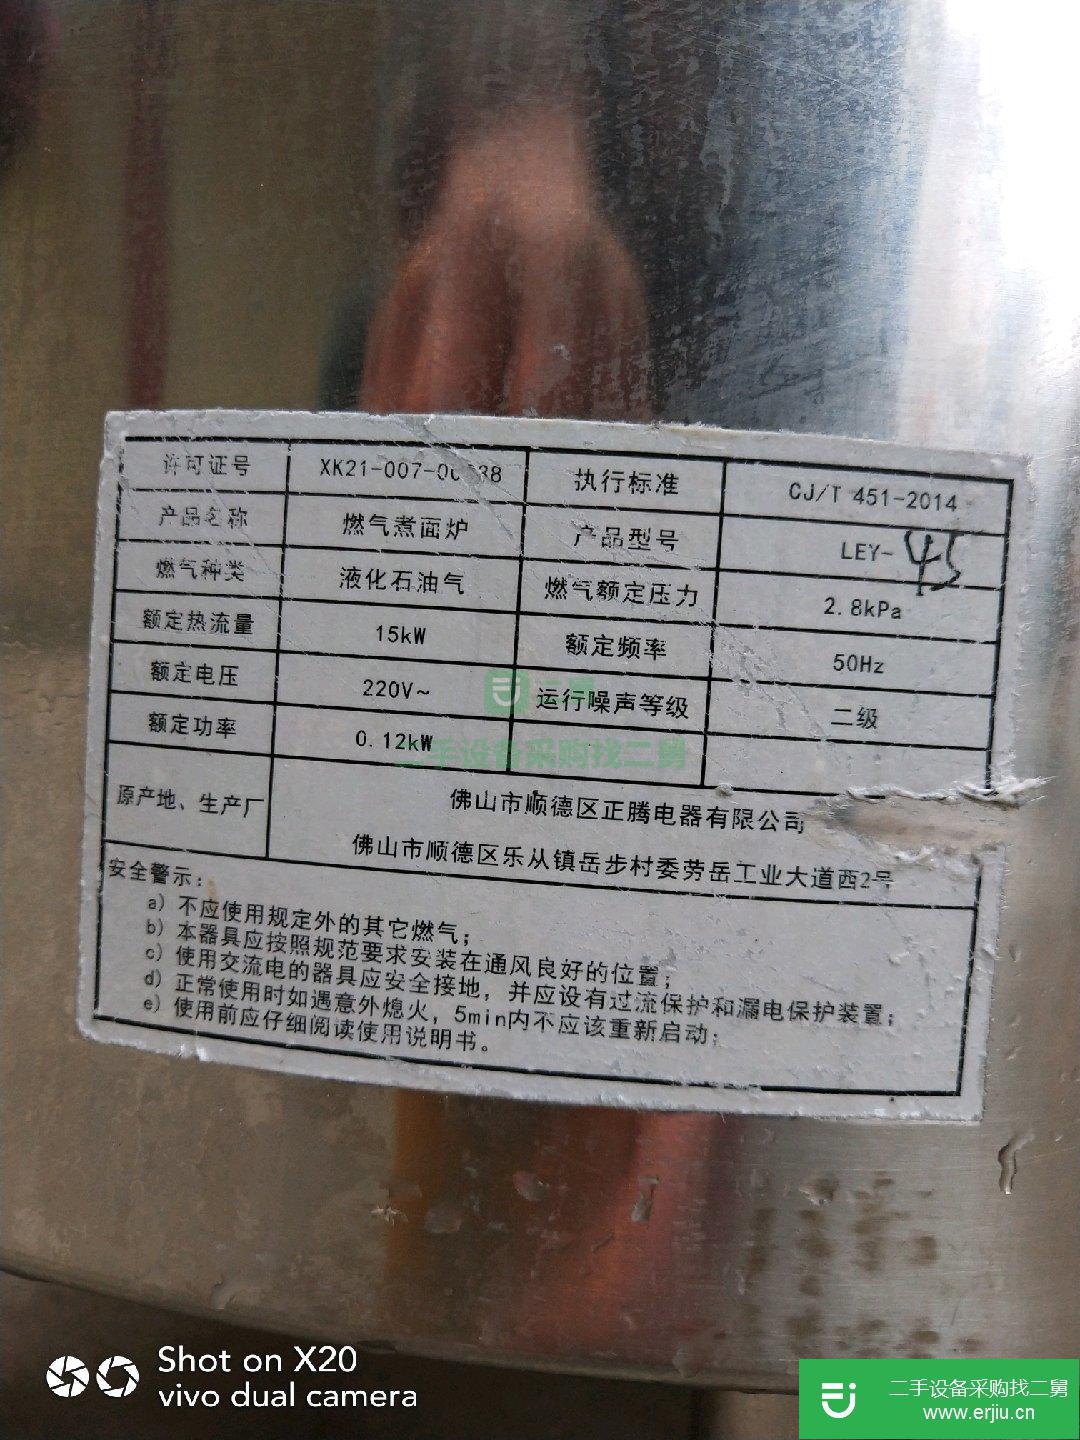 许可证号 XK21-007-00 38 执行标准 CJ/T 451-2014
产品名称 燃气煮面炉 产品型号 LEY-45
燃气种类 液化石油气 燃气额定压力 2.8kPa
额定热流量 15kW 额定频率 50Hz
额定电压 220V~ 运行噪声等级 二级
额定功率 0.12kW
原产地、生产厂 佛山市顺德区正腾电器有限公司
佛山市顺德区乐从镇岳步村委劳岳工业大道西2号
二手设备采购找二舅
安全警示:
a) 不应使用规定外的其它燃气;
b) 本器具应按照规范要求安装在通风良好的位置;
c) 使用交流电的器具应安全接地,并应设有过流保护和漏电保护装置;
d) 正常使用时如遇意外熄火,5min内不应该重新启动;
e) 使用前应仔细阅读使用说明书。
Shot on X20
vivo dual camera
二手设备采购找二舅
www.erjiu.cn